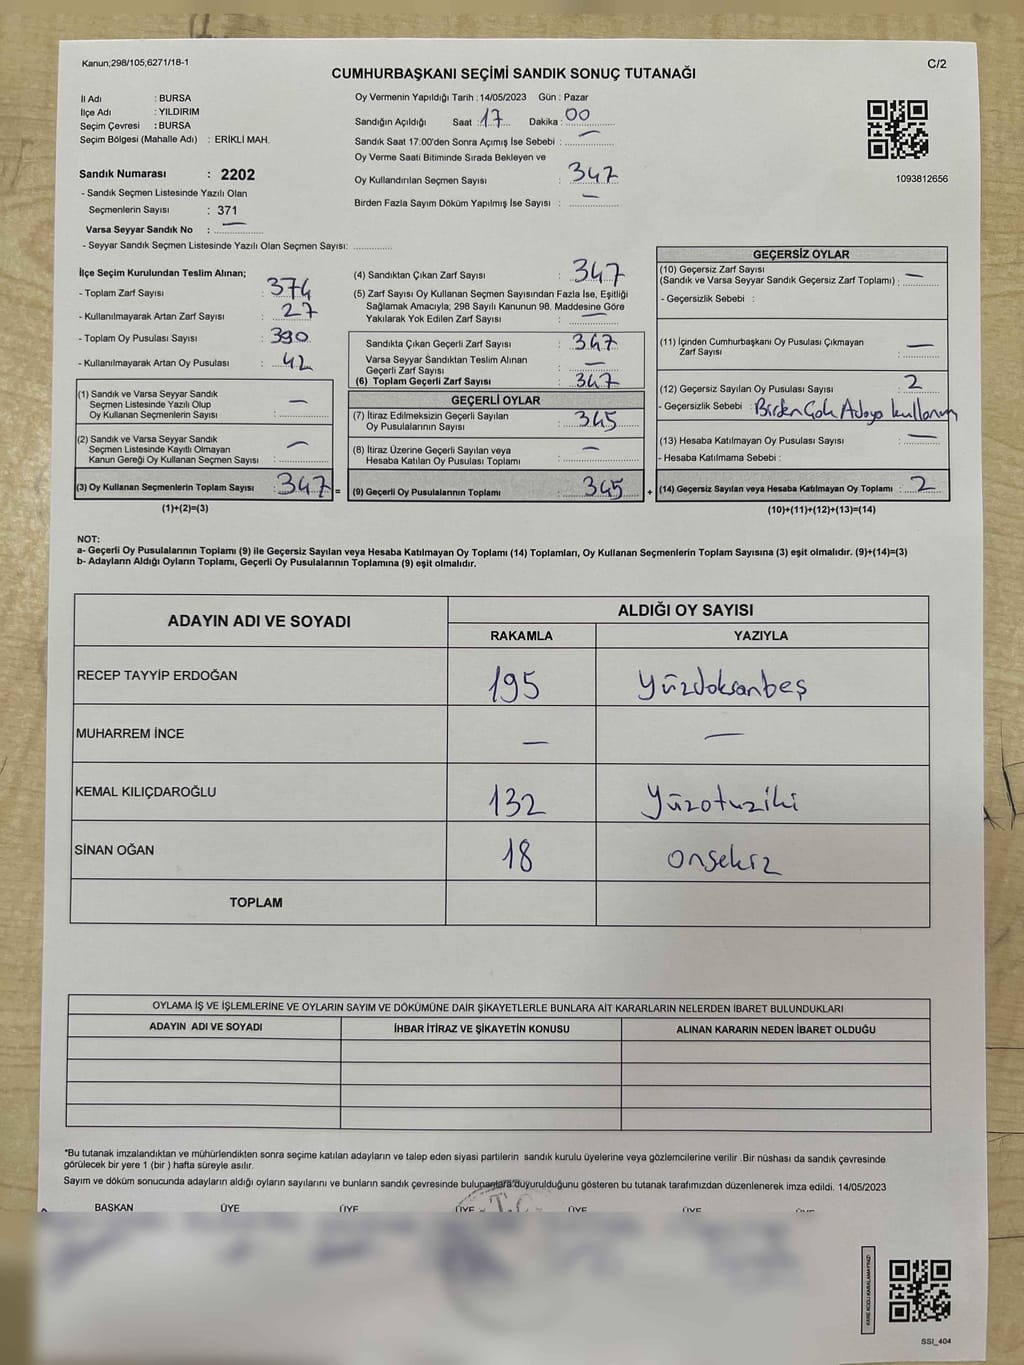 Kanun;298/105;6271/18-1
C/2
CUMHURBAŞKANI SEÇİMİ SANDIK SONUÇ TUTANAĞI
İl Adı : BURSA
İlçe Adı : YILDIRIM
Seçim Çevresi : BURSA
Seçim Bölgesi (Mahalle Adı) : ERİKLİ MAH.
Sandık Numarası : 2202
- Sandık Seçmen Listesinde Yazılı Olan
Seçmenlerin Sayısı : 371
Varsa Seyyar Sandık No : —
- Seyyar Sandık Seçmen Listesinde Yazılı Olan Seçmen Sayısı:
Oy Vermenin Yapıldığı Tarih : 14/05/2023 Gün : Pazar
Sandığın Açıldığı Saat : 17 Dakika : 00
Sandık Saat 17:00'den Sonra Açımış İse Sebebi : —
Oy Verme Saati Bitiminde Sırada Bekleyen ve
Oy Kullandırılan Seçmen Sayısı : 347
Birden Fazla Sayım Döküm Yapılmış İse Sayısı : —
1093812656
İlçe Seçim Kurulundan Teslim Alınan;
- Toplam Zarf Sayısı : 374
- Kullanılmayarak Artan Zarf Sayısı : 27
- Toplam Oy Pusulası Sayısı : 390
- Kullanılmayarak Artan Oy Pusulası : 42
(1) Sandık ve Varsa Seyyar Sandık
Seçmen Listesinde Yazılı Olup
Oy Kullanan Seçmenlerin Sayısı : —
(2) Sandık ve Varsa Seyyar Sandık
Seçmen Listesinde Kayıtlı Olmayan
Kanun Gereği Oy Kullanan Seçmen Sayısı : —
(3) Oy Kullanan Seçmenlerin Toplam Sayısı : 347 =
(1)+(2)=(3)
(4) Sandıktan Çıkan Zarf Sayısı : 347
(5) Zarf Sayısı Oy Kullanan Seçmen Sayısından Fazla İse, Eşitliği
Sağlamak Amacıyla; 298 Sayılı Kanunun 98. Maddesine Göre
Yakılarak Yok Edilen Zarf Sayısı : —
Sandıkta Çıkan Geçerli Zarf Sayısı : 347
Varsa Seyyar Sandıktan Teslim Alınan
Geçerli Zarf Sayısı : —
(6) Toplam Geçerli Zarf Sayısı : 347
GEÇERLİ OYLAR
(7) İtiraz Edilmeksizin Geçerli Sayılan
Oy Pusulalarının Sayısı : 345
(8) İtiraz Üzerine Geçerli Sayılan veya
Hesaba Katılan Oy Pusulası Toplamı : —
(9) Geçerli Oy Pusulalarının Toplamı : 345 +
GEÇERSİZ OYLAR
(10) Geçersiz Zarf Sayısı
(Sandık ve Varsa Seyyar Sandık Geçersiz Zarf Toplamı) : —
- Geçersizlik Sebebi :
(11) İçinden Cumhurbaşkanı Oy Pusulası Çıkmayan
Zarf Sayısı : —
(12) Geçersiz Sayılan Oy Pusulası Sayısı : 2
- Geçersizlik Sebebi : Birden Çok Adaya kullanım
(13) Hesaba Katılmayan Oy Pusulası Sayısı : —
- Hesaba Katılmama Sebebi :
(14) Geçersiz Sayılan veya Hesaba Katılmayan Oy Toplamı : 2
(10)+(11)+(12)+(13)=(14)
NOT:
a- Geçerli Oy Pusulalarının Toplamı (9) ile Geçersiz Sayılan veya Hesaba Katılmayan Oy Toplamı (14) Toplamları, Oy Kullanan Seçmenlerin Toplam Sayısına (3) eşit olmalıdır. (9)+(14)=(3)
b- Adayların Aldığı Oyların Toplamı, Geçerli Oy Pusulalarının Toplamına (9) eşit olmalıdır.
ADAYIN ADI VE SOYADI
ALDIĞI OY SAYISI
RAKAMLA YAZIYLA
RECEP TAYYİP ERDOĞAN 195 yüzdoksanbeş
MUHARREM İNCE — —
KEMAL KILIÇDAROĞLU 132 yüzotuziki
SİNAN OĞAN 18 onsekiz
TOPLAM
OYLAMA İŞ VE İŞLEMLERİNE VE OYLARIN SAYIM VE DÖKÜMÜNE DAİR ŞİKAYETLERLE BUNLARA AİT KARARLARIN NELERDEN İBARET BULUNDUKLARI
ADAYIN ADI VE SOYADI İHBAR İTİRAZ VE ŞİKAYETİN KONUSU ALINAN KARARIN NEDEN İBARET OLDUĞU
*Bu tutanak imzalandıktan ve mühürlendikten sonra seçime katılan adayların ve talep eden siyasi partilerin sandık kurulu üyelerine veya gözlemcilerine verilir .Bir nüshası da sandık çevresinde
görülecek bir yere 1 (bir ) hafta süreyle asılır.
Sayım ve döküm sonucunda adayların aldığı oyların sayılarını ve bunların sandık çevresinde bulunanlara duyurulduğunu gösteren bu tutanak tarafımızdan düzenlenerek imza edildi. 14/05/2023
BAŞKAN ÜYE ÜYE ÜYE ÜYE ÜYE
T.C.
SSI_404